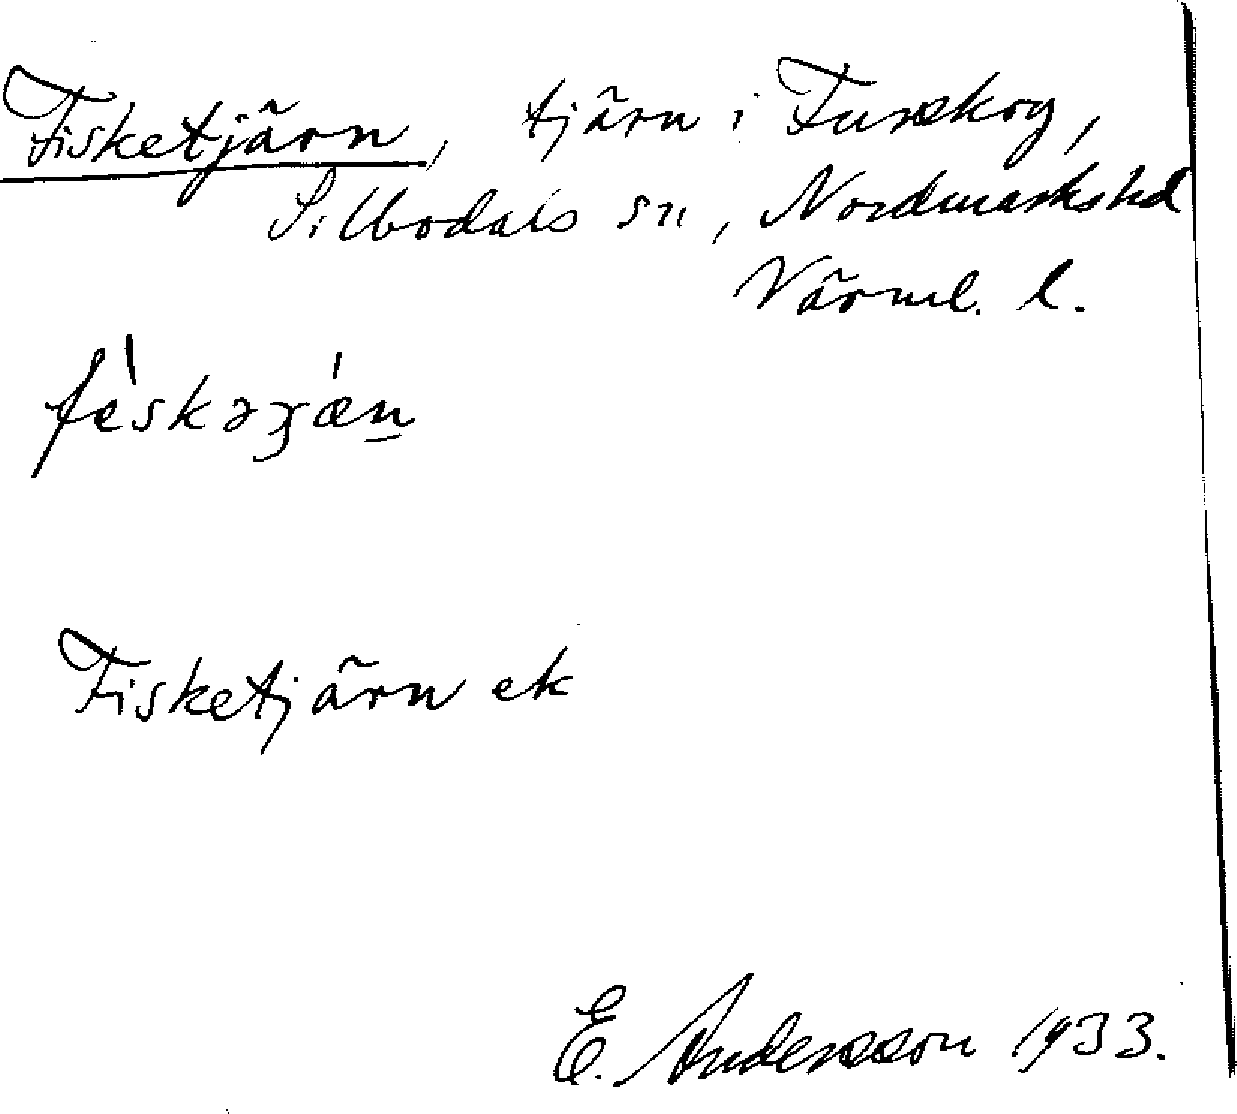 Fisketjärn, tjärn i Furskog,
Silbodals sn, Nordmarks hd
Värml. l.
Fisketjärn ek
E. Andersson 1933.